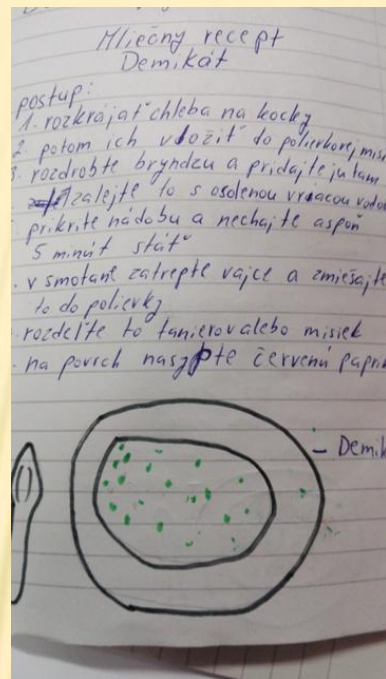 Mliečny recept
Demikát
postup:
1. rozkrájať chleba na kocky
2. potom ich vložiť do polievkovej mis
3. rozdrobte bryndzu a pridajte ju tam
zalejte to s osolenou vriacou vodo
prikrite nádobu a nechajte aspoň
5 minút stáť
. v smotane zatrepte vajce a zmiešajte
to do polievky
. rozdelte to tanierov alebo misiek
. na povrch nasypte červenú papri
– Demik